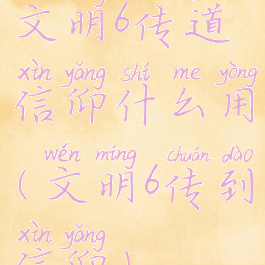 文明6传道
xìn yǎng shí me yòng
信仰什么用
wén míng chuán dào
(文明6传到
xìn yǎng
信仰)